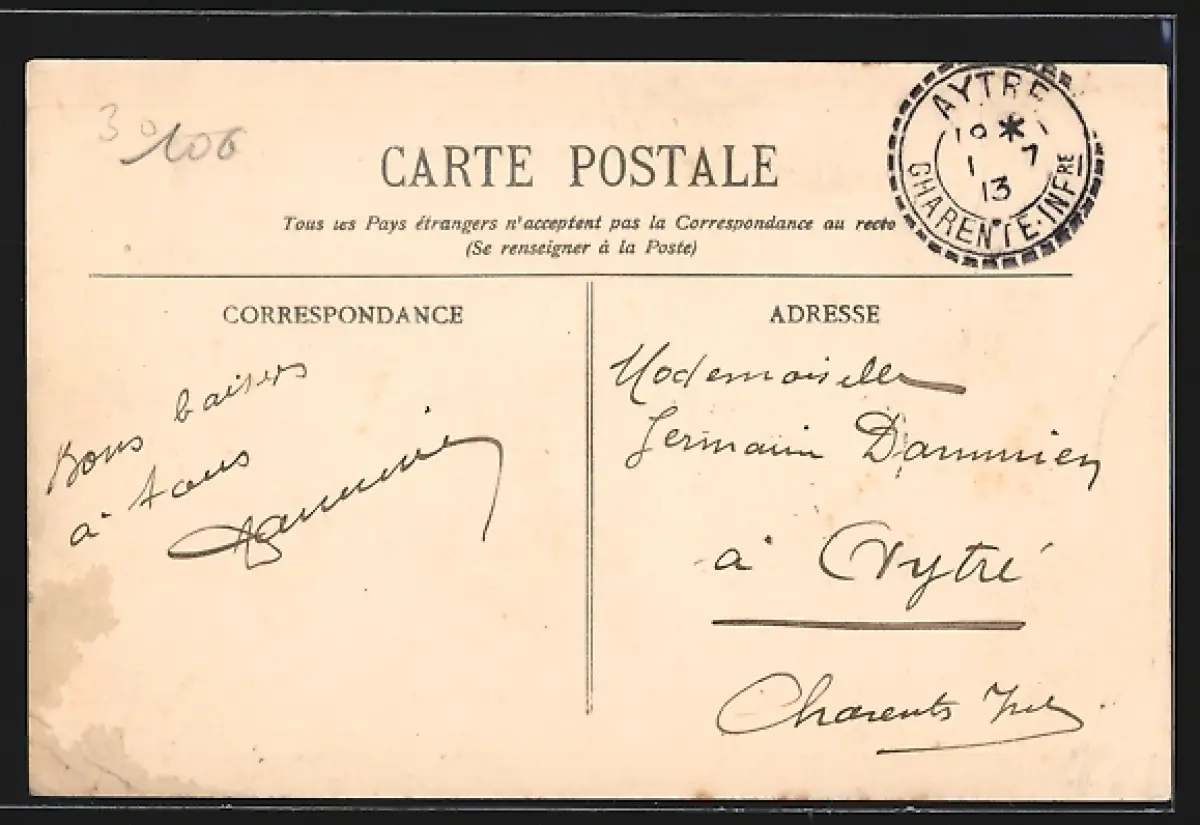 30
106
AYTRE
1 7
13
CHARENTE-INFRE
CARTE POSTALE
Tous les Pays étrangers n'acceptent pas la Correspondance au recto
(Se renseigner à la Poste)
CORRESPONDANCE
Bons baisers
à tous
ADRESSE
Mademoiselle
Germain
à Aytré
Charente Infre